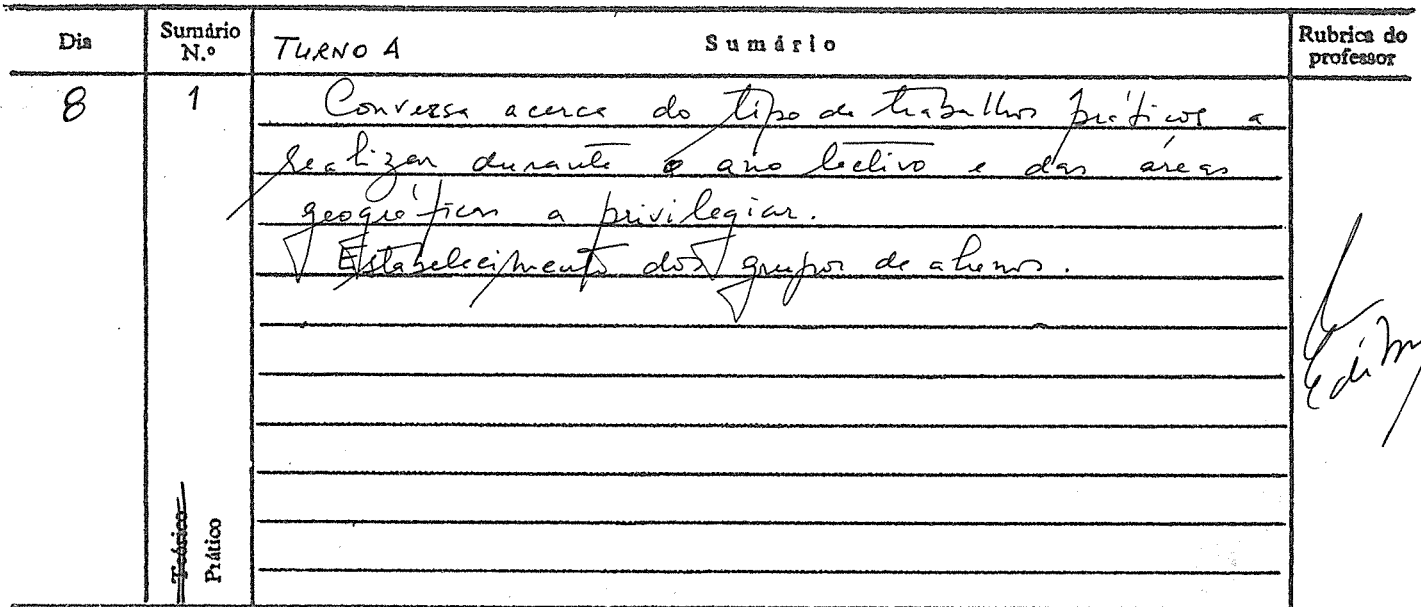 Dia Sumário N.º TURNO A Sumário Rubrica do professor
8 1 Conversa acerca do tipo de trabalhos práticos a
realizar durante o ano lectivo e das áreas
geográficas a privilegiar.
Estabelecimento dos grupos de alunos.
Teórico
Prático